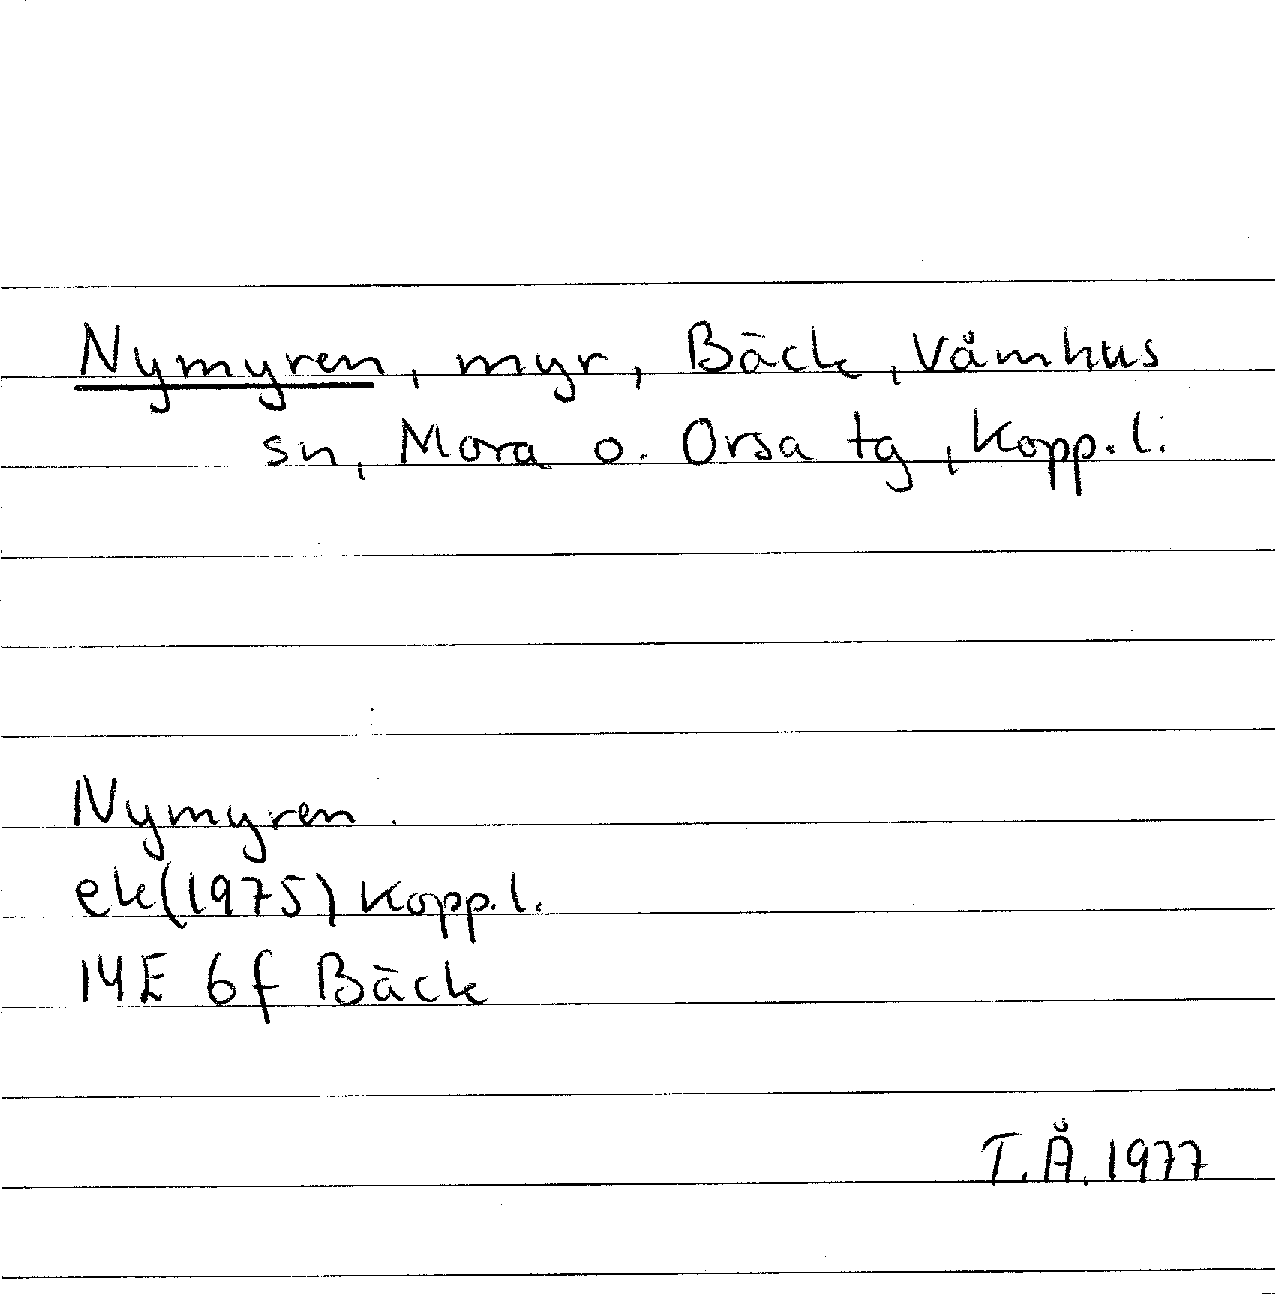 Nymyren, myr, Bäck, Våmhus
sn, Mora o. Orsa tg, Kopp.l.
Nymyren.
ek(1975) Kopp.l.
14E 6f Bäck
T.Å. 1977